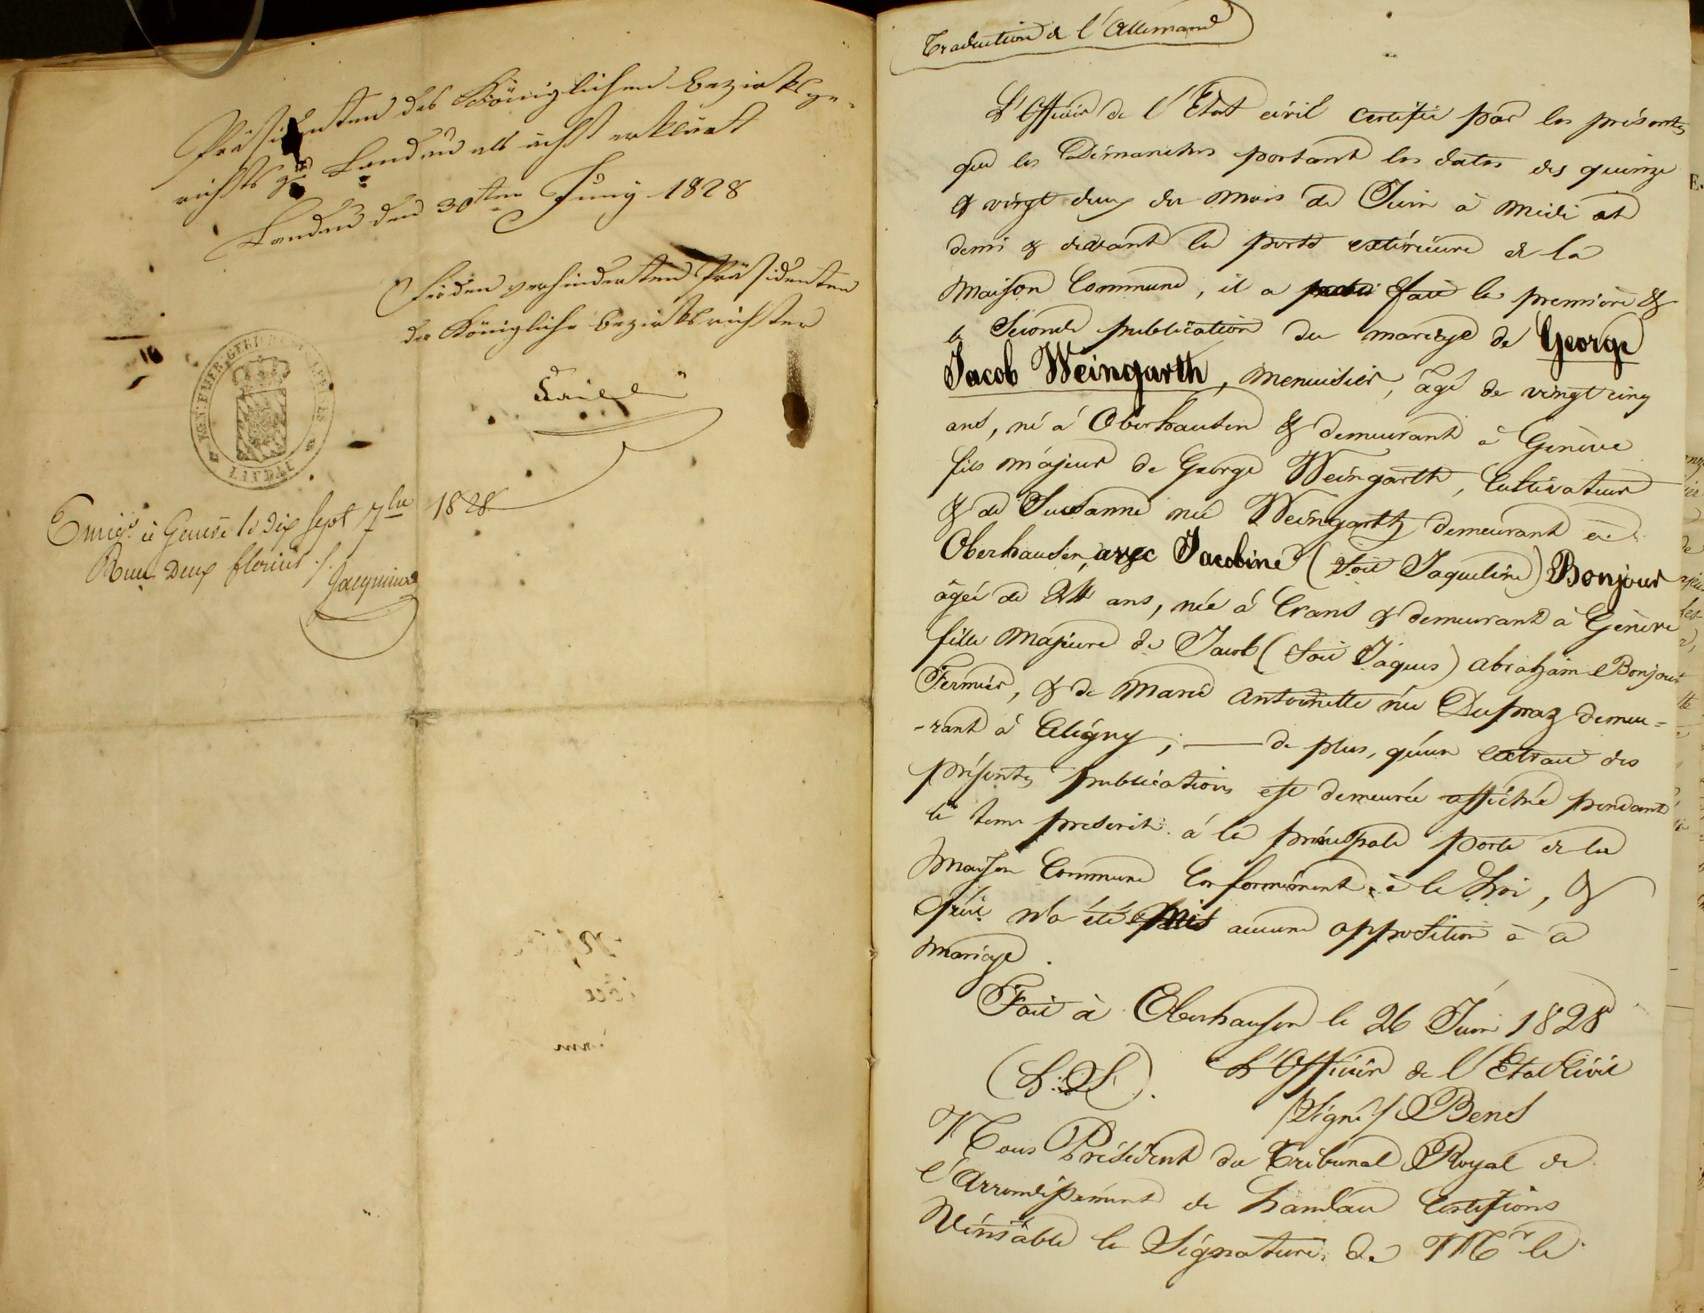 Präsidenten des Königlichen Bezirksge-
richts zu Landau als ächt erklärt
Landau den 30ten Juny 1828
Für den verhinderten Präsidenten
der Königliche Bezirksrichter
LANDAU
Enreg. à Genève le dix sept 7bre 1828
Reçu Deux florins
Traduction de l'Allemand
L'Officier de l'Etat civil certifie par les présentes
que les Dimanches portant les dates des quinze
& vingt deux du mois de Juin à midi et
demi & devant la porte extérieure de la
Maison Commune, il a fait la première &
la Seconde publication du mariage de George
Jacob Weingarth, menuisier, âgé de vingt cinq
ans, né à Oberhausen & demeurant à Genève
fils majeur de George Weingarth, Cultivateur
& de Susanne née Weingarth demeurant à
Oberhausen, avec Jacobine (soit Jaqueline) Bonjour
âgée de 24 ans, née à Crans & demeurant à Genève
fille majeure de Jacob (soit Jaques) Abraham Bonjour
Fermier, & de Marie Antoinette née Dupraz demeu-
-rant à Céligny; — de plus, qu'un extrait des
présentes publications est demeurée affichée pendant
le tems prescrit à la principale porte de la
Maison Commune Conformément à la Loi, &
qu'il n'a été mis aucune opposition à ce
mariage.
Fait à Oberhausen le 26 Juin 1828
(L.S.) L'Officier de l'Etat Civil
(Signé)
Nous Président du Tribunal Royal de
l'Arrondissement de Landau Certifions
Véritable la Signature de Mr le